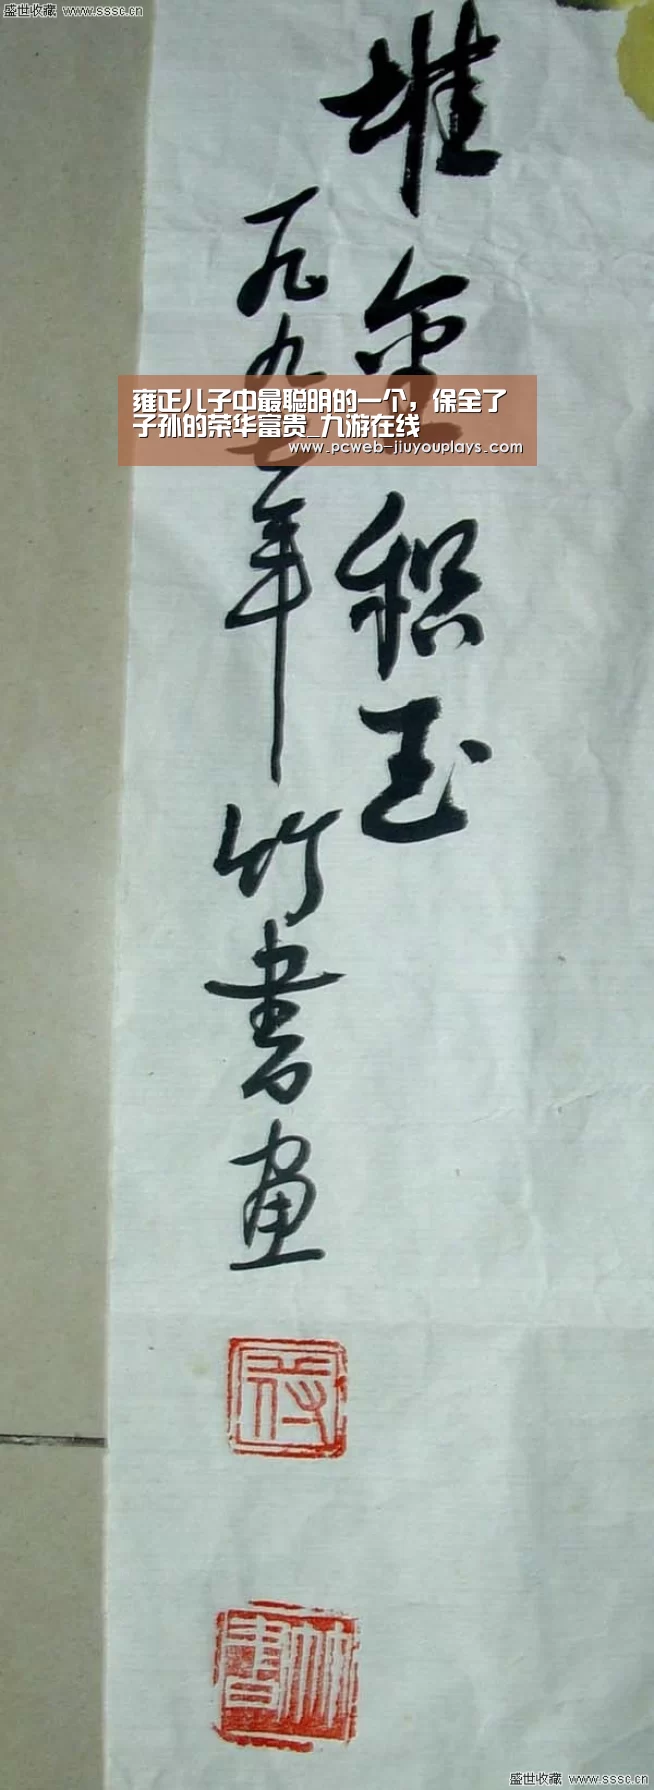 盛世收藏 www.sssc.cn
堆金积玉
一九九七年竹書画
雍正儿子中最聪明的一个，保全了
子孙的荣华富贵_九游在线
www.pcweb-jiuyouplays.com
竹書
盛世收藏 www.sssc.cn